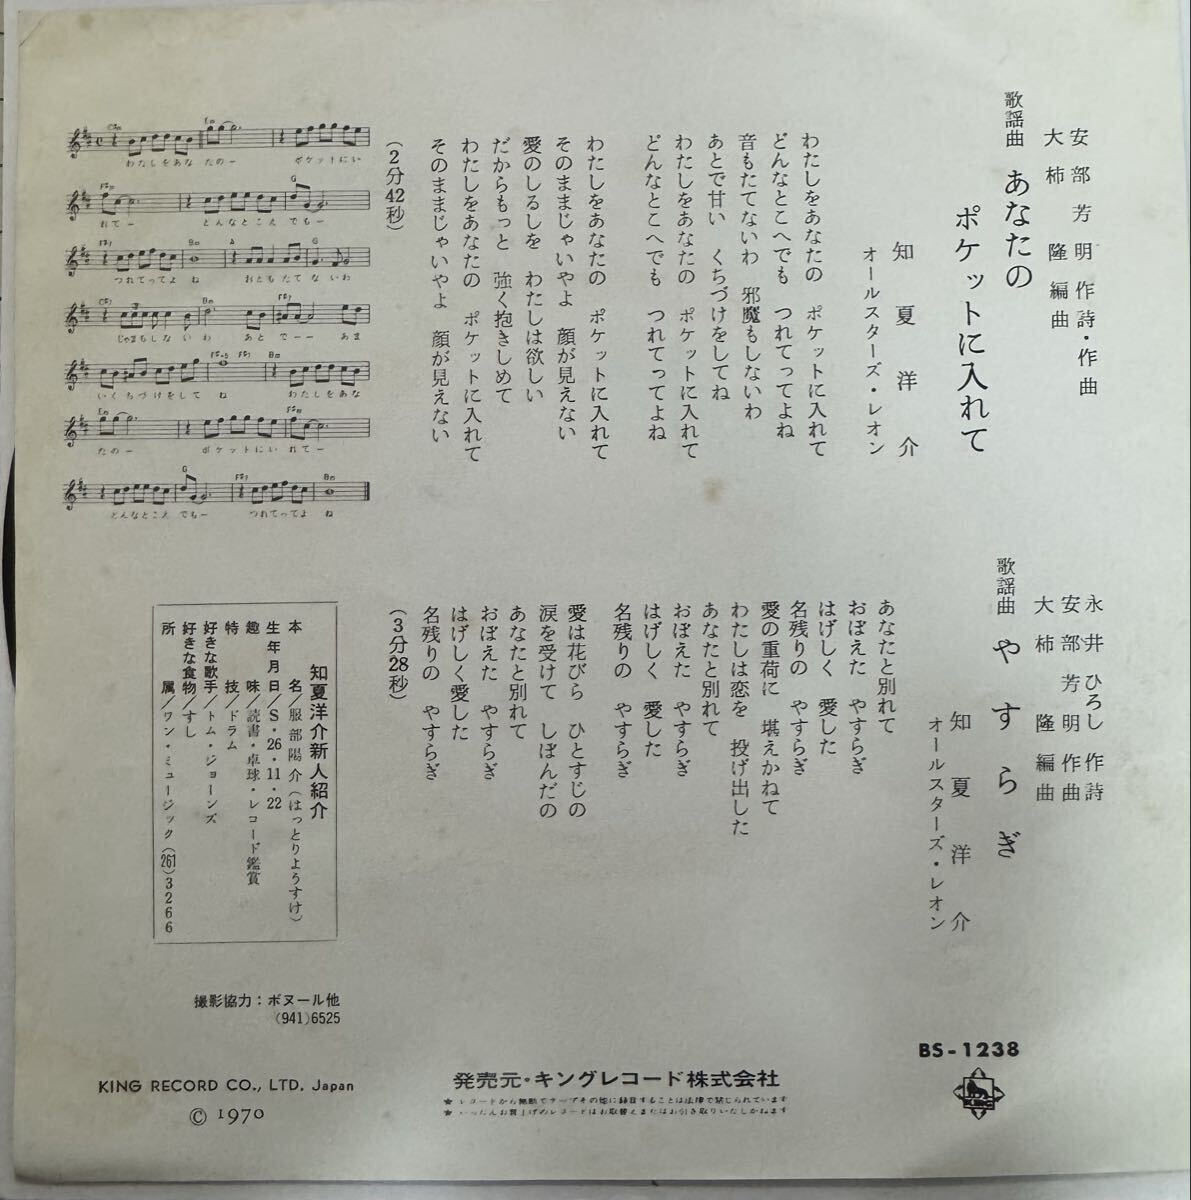 安部芳明 作詩・作曲
大柿 隆 編曲
歌謡曲 あなたの
ポケットに入れて
知夏洋介
オールスターズ・レオン
わたしをあなたの ポケットに入れて
どんなとこへでも つれてってよね
音もたてないわ 邪魔もしないわ
あとで甘い くちづけをしてね
わたしをあなたの ポケットに入れて
どんなとこへでも つれてってよね
わたしをあなたの ポケットに入れて
そのままじゃいやよ 顔が見えない
愛のしるしを わたしは欲しい
だからもっと 強く抱きしめて
わたしをあなたの ポケットに入れて
そのままじゃいやよ 顔が見えない
(2分42秒)
わたしをあな たのー ポケットにい
れてー どんなとこえ でもー
つれてってよ ね おともたて ないわ
じゃまもしな いわ あとでーー あま
いくちづけをして ね わたしをあな
たのー ポケットにい れてー
どんなとこえ でもー つれてってよ ね
永井ひろし 作詩
安部芳明 作曲
大柿 隆 編曲
歌謡曲 やすらぎ
知夏洋介
オールスターズ・レオン
あなたと別れて
おぼえた やすらぎ
はげしく 愛した
名残りの やすらぎ
愛の重荷に 堪えかねて
わたしは恋を 投げ出した
あなたと別れて
おぼえた やすらぎ
はげしく 愛した
名残りの やすらぎ
愛は花びら ひとすじの
涙を受けて しぼんだの
あなたと別れて
おぼえた やすらぎ
はげしく愛した
名残りの やすらぎ
(3分28秒)
知夏洋介新人紹介
本名/服部陽介(はっとりようすけ)
生年月日/S・26・11・22
趣味/読書・卓球・レコード鑑賞
特技/ドラム
好きな歌手/トム・ジョーンズ
好きな食物/すし
所属/ワン・ミュージック(261)3266
撮影協力:ボヌール他
(941)6525
BS-1238
KING RECORD CO., LTD. Japan
© 1970
発売元・キングレコード株式会社
★ レコードから無断でテープその他に録音することは法律で禁じられています
★ いったんお買上げのレコードはお取替えまたはお引き取りいたしかねます